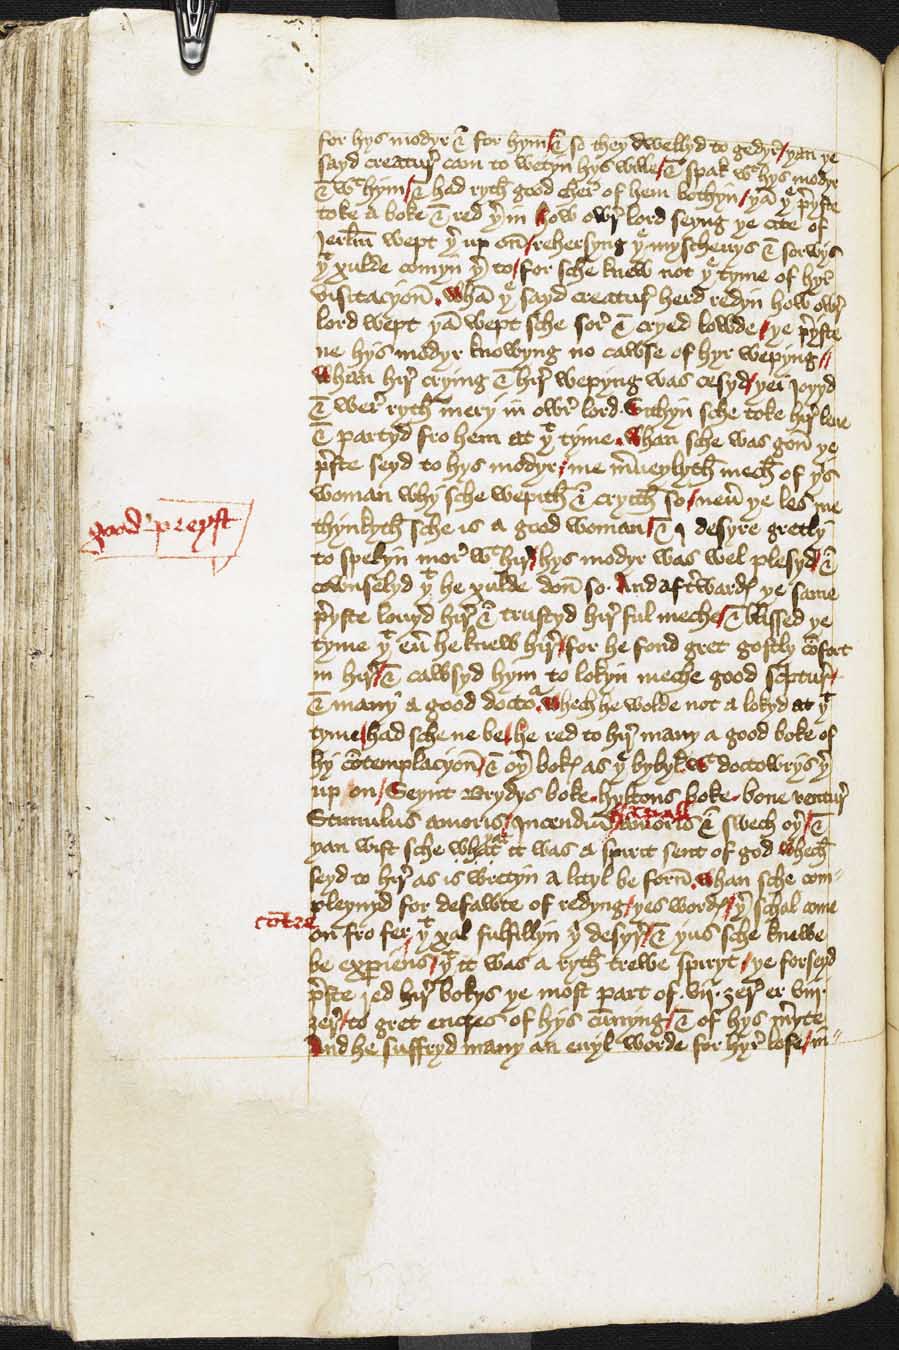 for hys modyr & for hym / & so they dwellyd to gedyr / yan ye
sayd creatur cam to wetyn hys wille / & spak wt hys modyr
& wt hym / & had ryth good cher of hem bothyn / yā ye p̄yste
toke a boke & red yin how owr lord seyng ye cite of
Jerlm wept yr up on / rehersyng ye myscheuys & sorwys
yt xulde comyn yr to / for sche knew not ye tyme of hyr
visitacyon̄ . whā ye sayd creatur herd redyn how owr
lord wept yā wept sche sor & cryed lowde / ye p̄yste
ne hys modyr knowyng no cawse of hyr wepyng //
Whan hir crying & hir wepyng was cesyd / yei joyyd
& wer ryth mery in owr lord . Sithyn sche toke hir leue
& partyd fro hem at yt tyme . whan sche was gon ye
p̄ste seyd to hys modyr / me m̄ueylyth mech of yis
woman why sche wepith & cryith so / neū ye les me
thynkyth sche is a good woman / & I desyre gretly
to spekyn mor wt hir / hys modyr was wel plesyd / &
cownselyd yt he xulde don̄ so . And aft̄ward ye same
p̄yste louyd hir & trustyd hir ful meche / & blissed ye
tyme yt eū he knew hir / for he fond gret gostly cōfort
in hir / & cawsyd hym to lokyn meche good sc̄ptur /
& many a good doctor whech he wolde not a lokyd at yt
tyme / had sche ne be / he red to hir many a good boke of
hy cōtemplacyon̄ / & oyr bokys as ye bybyl wt doctowrys yr
up on / Seynt Brydys boke . hyltons boke . bone ventur
Stimulus amoris / Incendiū amoris & swech oyr / &
yan wist sche what it was a spirit sent of god whech
seyd to hir as is wretyn a lityl be forn̄ . whan sche com=
pleynyd for defawte of redyng / yes wordys / yr schal come
on fro fer yt xal fulfillyn yi desyr / & yus sche knewe
be experiens / yt it was a ryth trewe spiryt / ye forseyd
p̄ste red hir bokys ye most part of . vij . ȝer er viij .
ȝer / to gret encres of hys cūnyng / & of hys m̄yte
And he suffryd many an euyl worde for hyr lofe / in=
good preyst